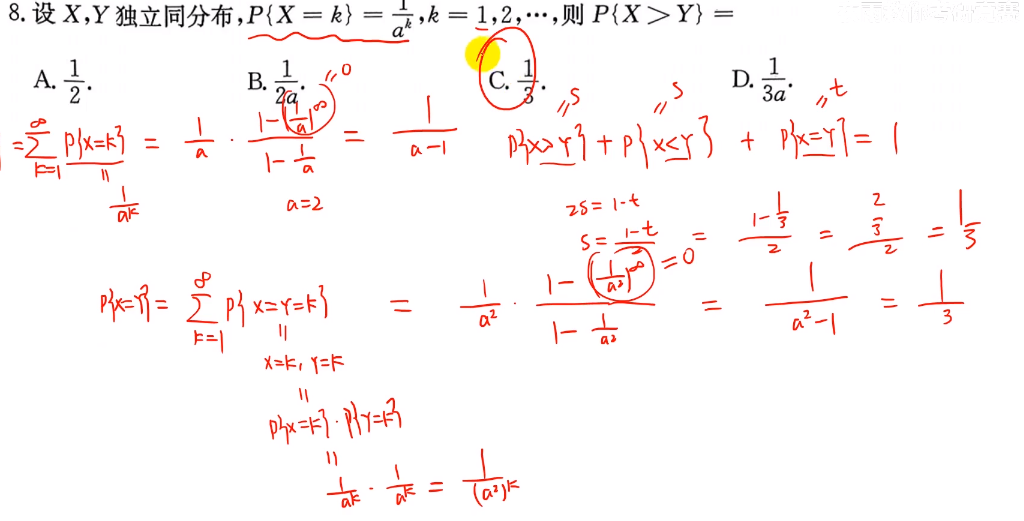 8. 设 X,Y 独立同分布,P{X = k} = 1/a^k, k = 1,2,⋯,则 P{X > Y} =
A. 1/2. B. 1/2a. C. 1/3. D. 1/3a.
= ∑_{k=1}^{∞} P{X=k} = 1/a · (1-(1/a)^∞)/(1-1/a) = 1/(a-1)
=0
|| 1/a^k
a=2
||S ||S ||t
P{X>Y} + P{X<Y} + P{X=Y} = 1
2S = 1-t
S = (1-t)/2 = (1-1/3)/2 = (2/3)/2 = 1/3
P{X=Y} = ∑_{k=1}^{∞} P{X=Y=k} = 1/a² · (1-(1/a²)^∞)/(1-1/a²) = 1/(a²-1) = 1/3
=0
||
X=k, Y=k
||
P{X=k}·P{Y=k}
||
1/a^k · 1/a^k = 1/(a²)^k